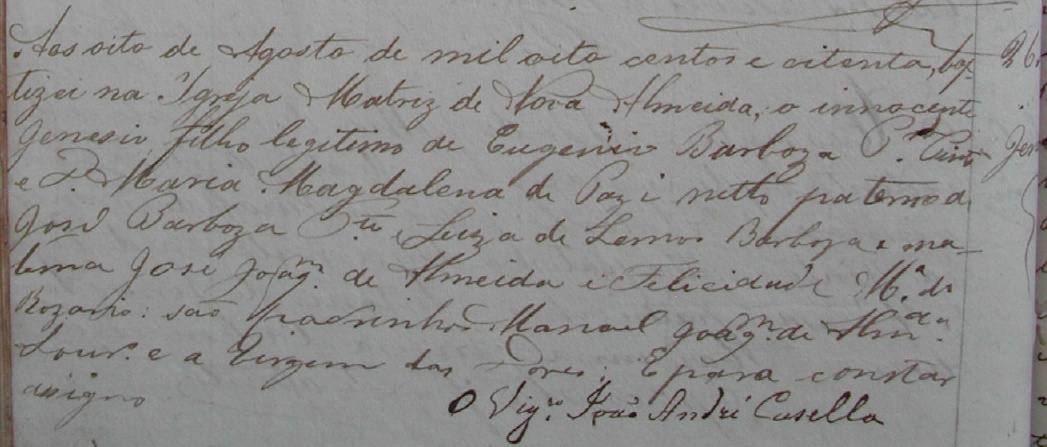 Aos oito de Agosto de mil oito centos e oitenta, bap-
tizei na Igreja Matriz de Nova Almeida, o innocente
Genesio, filho legitimo de Eugenio Barboza P.
e D. Maria Magdalena da Paz; netto paterno de
José Barboza e Luiza de Lemos Barboza e ma-
terno José Joaqm. de Almeida e Felicidade Ma. do
Rozario: são padrinhos Manoel Joaqm. de Almda.
Lour. e a Virgem das Dores. E para constar
assigno
O Vigro. João André Casella
26
Jen